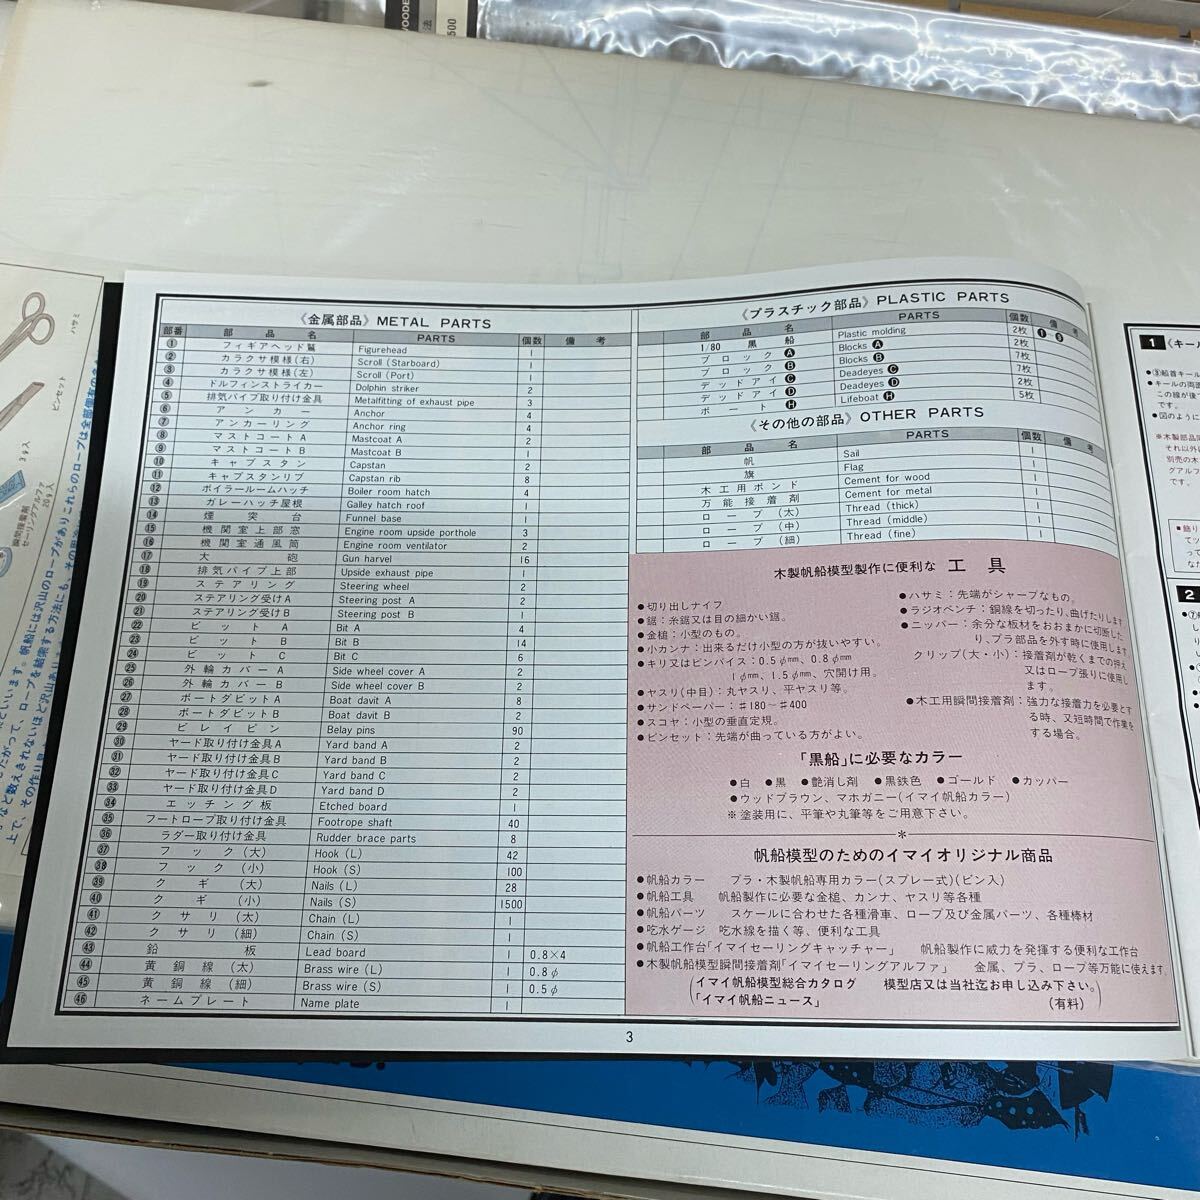 《金属部品》 METAL PARTS
部番 部品名 PARTS 個数 備考
① フィギアヘッド Figurehead 1
② カラクサ模様(右) Scroll (Starboard) 1
③ カラクサ模様(左) Scroll (Port) 1
④ ドルフィンストライカー Dolphin striker 2
⑤ 排気パイプ取り付け金具 Metalfitting of exhaust pipe 3
⑥ アンカー Anchor 4
⑦ アンカーリング Anchor ring 4
⑧ マストコートA Mastcoat A 2
⑨ マストコートB Mastcoat B 1
⑩ キャプスタン Capstan 2
⑪ キャプスタンリブ Capstan rib 8
⑫ ボイラールームハッチ Boiler room hatch 4
⑬ ガレーハッチ屋根 Galley hatch roof 1
⑭ 煙突台 Funnel base 1
⑮ 機関室上部窓 Engine room upside porthole 3
⑯ 機関室通風筒 Engine room ventilator 2
⑰ 大砲 Gun harvel 16
⑱ 排気パイプ上部 Upside exhaust pipe 1
⑲ ステアリング Steering wheel 2
⑳ ステアリング受けA Steering post A 2
㉑ ステアリング受けB Steering post B 1
㉒ ビットA Bit A 4
㉓ ビットB Bit B 14
㉔ ビットC Bit C 6
㉕ 外輪カバーA Side wheel cover A 2
㉖ 外輪カバーB Side wheel cover B 2
㉗ ボートダビットA Boat davit A 8
㉘ ボートダビットB Boat davit B 2
㉙ ビレイピン Belay pins 90
㉚ ヤード取り付け金具A Yard band A 2
㉛ ヤード取り付け金具B Yard band B 2
㉜ ヤード取り付け金具C Yard band C 2
㉝ ヤード取り付け金具D Yard band D 2
㉞ エッチング板 Etched board 1
㉟ フートロープ取り付け金具 Footrope shaft 40
㊱ ラダー取り付け金具 Rudder brace parts 8
㊲ フック(大) Hook (L) 42
㊳ フック(小) Hook (S) 100
㊴ クギ(大) Nails (L) 28
㊵ クギ(小) Nails (S) 1500
㊶ クサリ(太) Chain (L) 1
㊷ クサリ(細) Chain (S) 1
㊸ 鉛板 Lead board 1 0.8×4
㊹ 黄銅線(太) Brass wire (L) 1 0.8φ
㊺ 黄銅線(細) Brass wire (S) 1 0.5φ
㊻ ネームプレート Name plate 1
《プラスチック部品》 PLASTIC PARTS
部品名 PARTS 個数 備考
1/80 黒船 Plastic molding 2枚
ブロックA Blocks A 2枚
ブロックB Blocks B 7枚
デッドアイC Deadeyes C 7枚
デッドアイD Deadeyes D 2枚
ボートH Lifeboat H 5枚
《その他の部品》 OTHER PARTS
部品名 PARTS 個数 備考
帆 Sail 1
旗 Flag 1
木工用ボンド Cement for wood 1
万能接着剤 Cement for metal 1
ロープ(太) Thread (thick) 1
ロープ(中) Thread (middle) 1
ロープ(細) Thread (fine) 1
木製帆船模型製作に便利な 工具
●切り出しナイフ
●鋸:糸鋸又は目の細かい鋸。
●金槌:小型のもの。
●小カンナ:出来るだけ小型の方が扱いやすい。
●キリ又はピンバイス:0.5φmm、0.8φmm
1φmm、1.5φmm、穴開け用。
●ヤスリ(中目):丸ヤスリ、平ヤスリ等。
●サンドペーパー:#180〜#400
●スコヤ:小型の垂直定規。
●ピンセット:先端が曲っている方がよい。
●ハサミ:先端がシャープなもの。
●ラジオペンチ:銅線を切ったり、曲げたりします
●ニッパー:余分な板材をおおまかに切断した
り、プラ部品を外す時に使用します
クリップ(大・小):接着剤が乾くまでの押え
又はロープ張りに使用し
ます。
●木工用瞬間接着剤:強力な接着力を必要とす
る時、又短時間で作業を
する場合。
「黒船」に必要なカラー
●白 ●黒 ●艶消し剤 ●黒鉄色 ●ゴールド ●カッパー
●ウッドブラウン、マホガニー(イマイ帆船カラー)
※塗装用に、平筆や丸筆等をご用意下さい。
*
帆船模型のためのイマイオリジナル商品
●帆船カラー プラ・木製帆船専用カラー(スプレー式)(ビン入)
●帆船工具 帆船製作に必要な金槌、カンナ、ヤスリ等各種
●帆船パーツ スケールに合わせた各種滑車、ロープ及び金属パーツ、各種棒材
●吃水ゲージ 吃水線を描く等、便利な工具
●帆船工作台「イマイセーリングキャッチャー」 帆船製作に威力を発揮する便利な工作台
●木製帆船模型瞬間接着剤「イマイセーリングアルファ」 金属、プラ、ロープ等万能に使えます
(イマイ帆船模型総合カタログ 模型店又は当社迄お申し込み下さい。
「イマイ帆船ニュース」 (有料))
3
ハサミ
ピンセット
瞬間接着剤
セーリングアルファ
20g入
3g入
1 《キール
●③船首キール
●キールの両面
この線が後
です。
●図のように
※木製部品同
それ以外に
別売の木
グアルフ
です。
2
500